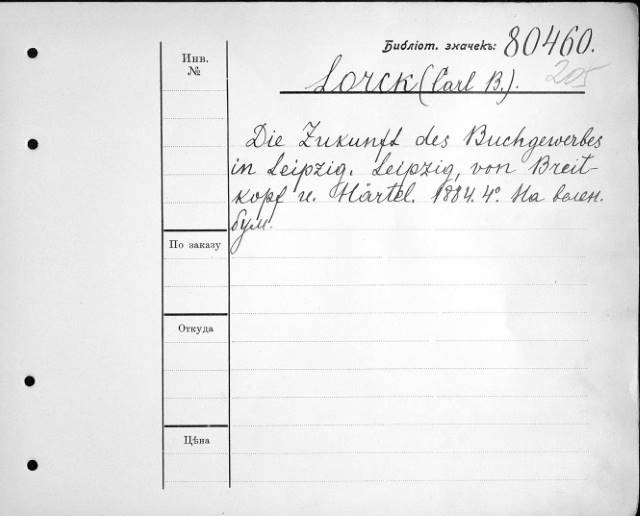 Библіот. значекъ: 80460.
Инв. №
Lorck (Carl B.). 205
Die Zukunft des Buchgewerbes
in Leipzig. Leipzig, von Breit-
kopf u. Härtel. 1884. 4º. На велен.
бум.
По заказу
Откуда
Цѣна